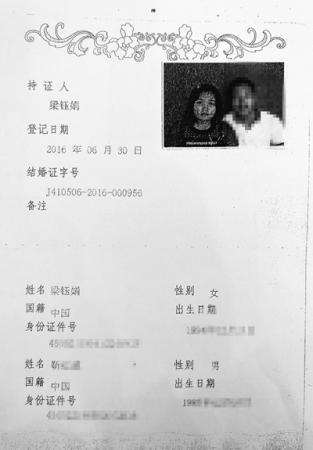 持 证 人
梁钰娟
登记日期
2016 年 06 月 30 日
结婚证字号
J410506-2016-000956
备注
姓名 梁钰娟 性别 女
国籍 中国 出生日期
身份证件号
姓名 靳 性别 男
国籍 中国 出生日期
身份证件号